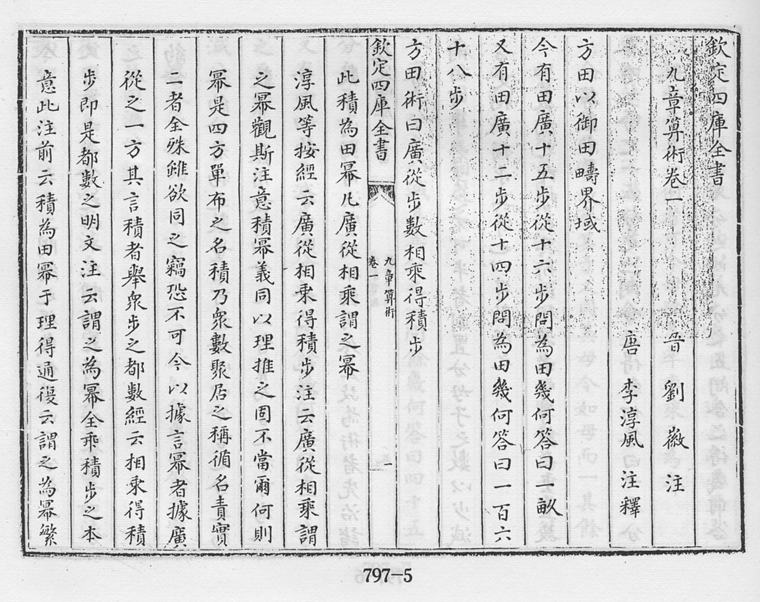 欽定四庫全書
九章算術卷一
晉 劉徽 注
唐 李淳風 注釋
方田以御田疇界域
今有田廣十五步從十六步問為田幾何答曰一畝
又有田廣十二步從十四步問為田幾何答曰一百六
十八步
方田術曰廣從步數相乘得積步
欽定四庫全書
九章算術
卷一
一
此積為田冪凡廣從相乘謂之冪
淳風等按經云廣從相乘得積步注云廣從相乘謂
之冪觀斯注意積冪義同以理推之固不當爾何則
冪是四方單布之名積乃衆數聚居之稱循名責實
二者全殊雖欲同之竊恐不可今以據言冪者據廣
從之一方其言積者舉衆步之都數經云相乘得積
步即是都數之明文注云謂之為冪全乖積步之本
意此注前云積為田冪于理得通復云謂之為冪繁
797-5